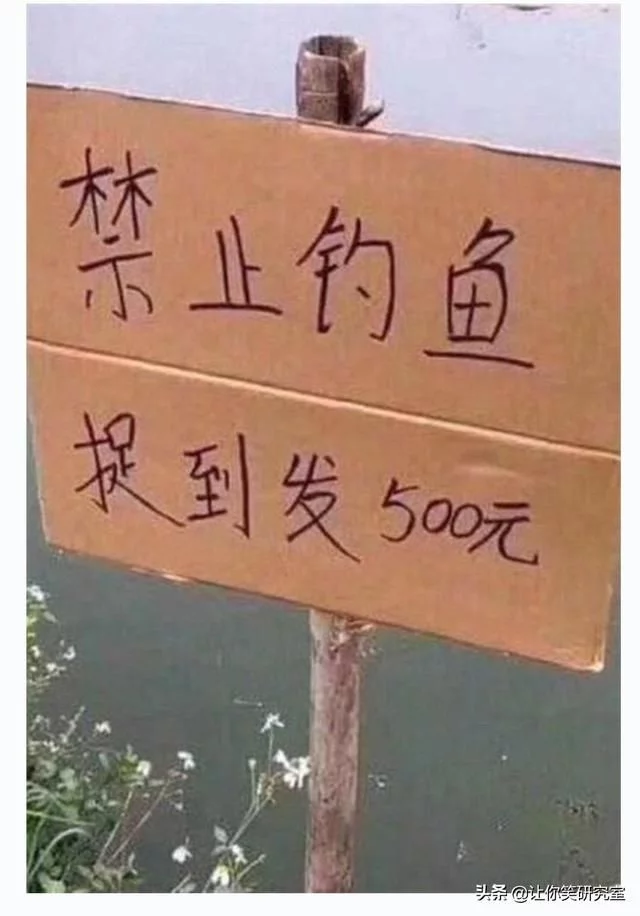 禁止钓鱼
捉到发500元
头条 @让你笑研究室